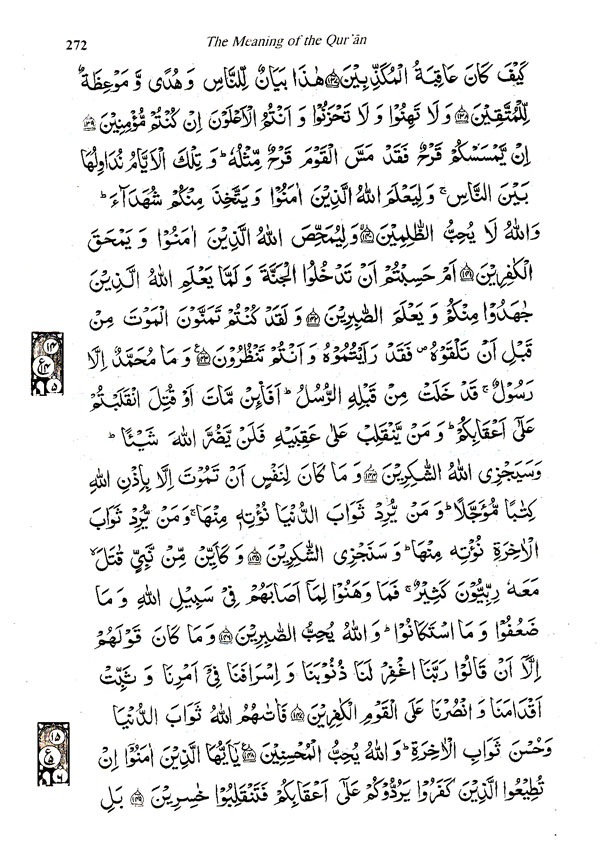 272
The Meaning of the Qur'ān
كَيْفَ كَانَ عَاقِبَةُ الْمُكَذِّبِيْنَ ﴿۱۳۷﴾ هٰذَا بَيَانٌ لِّلنَّاسِ وَ هُدًى وَّ مَوْعِظَةٌ
لِّلْمُتَّقِيْنَ ﴿۱۳۸﴾ وَ لَا تَهِنُوْا وَ لَا تَحْزَنُوْا وَ اَنْتُمُ الْاَعْلَوْنَ اِنْ كُنْتُمْ مُّؤْمِنِيْنَ ﴿۱۳۹﴾
اِنْ يَّمْسَسْكُمْ قَرْحٌ فَقَدْ مَسَّ الْقَوْمَ قَرْحٌ مِّثْلُهٗ ؕ وَ تِلْكَ الْاَيَّامُ نُدَاوِلُهَا
بَيْنَ النَّاسِ ۚ وَ لِيَعْلَمَ اللّٰهُ الَّذِيْنَ اٰمَنُوْا وَ يَتَّخِذَ مِنْكُمْ شُهَدَآءَ ؕ
وَ اللّٰهُ لَا يُحِبُّ الظّٰلِمِيْنَ ﴿۱۴۰﴾ وَ لِيُمَحِّصَ اللّٰهُ الَّذِيْنَ اٰمَنُوْا وَ يَمْحَقَ
الْكٰفِرِيْنَ ﴿۱۴۱﴾ اَمْ حَسِبْتُمْ اَنْ تَدْخُلُوا الْجَنَّةَ وَ لَمَّا يَعْلَمِ اللّٰهُ الَّذِيْنَ
جٰهَدُوْا مِنْكُمْ وَ يَعْلَمَ الصّٰبِرِيْنَ ﴿۱۴۲﴾ وَ لَقَدْ كُنْتُمْ تَمَنَّوْنَ الْمَوْتَ مِنْ
قَبْلِ اَنْ تَلْقَوْهُ ۪ فَقَدْ رَاَيْتُمُوْهُ وَ اَنْتُمْ تَنْظُرُوْنَ ﴿۱۴۳﴾ وَ مَا مُحَمَّدٌ اِلَّا
رَسُوْلٌ ۚ قَدْ خَلَتْ مِنْ قَبْلِهِ الرُّسُلُ ؕ اَفَا۠ئِنْ مَّاتَ اَوْ قُتِلَ انْقَلَبْتُمْ
عَلٰۤى اَعْقَابِكُمْ ؕ وَ مَنْ يَّنْقَلِبْ عَلٰى عَقِبَيْهِ فَلَنْ يَّضُرَّ اللّٰهَ شَيْئًا ؕ
وَ سَيَجْزِى اللّٰهُ الشّٰكِرِيْنَ ﴿۱۴۴﴾ وَ مَا كَانَ لِنَفْسٍ اَنْ تَمُوْتَ اِلَّا بِاِذْنِ اللّٰهِ
كِتٰبًا مُّؤَجَّلًا ؕ وَ مَنْ يُّرِدْ ثَوَابَ الدُّنْيَا نُؤْتِهٖ مِنْهَا ۚ وَ مَنْ يُّرِدْ ثَوَابَ
الْاٰخِرَةِ نُؤْتِهٖ مِنْهَا ؕ وَ سَنَجْزِى الشّٰكِرِيْنَ ﴿۱۴۵﴾ وَ كَاَيِّنْ مِّنْ نَّبِيٍّ قٰتَلَ ۙ
مَعَهٗ رِبِّيُّوْنَ كَثِيْرٌ ۚ فَمَا وَهَنُوْا لِمَاۤ اَصَابَهُمْ فِيْ سَبِيْلِ اللّٰهِ وَ مَا
ضَعُفُوْا وَ مَا اسْتَكَانُوْا ؕ وَ اللّٰهُ يُحِبُّ الصّٰبِرِيْنَ ﴿۱۴۶﴾ وَ مَا كَانَ قَوْلَهُمْ
اِلَّاۤ اَنْ قَالُوْا رَبَّنَا اغْفِرْ لَنَا ذُنُوْبَنَا وَ اِسْرَافَنَا فِيْۤ اَمْرِنَا وَ ثَبِّتْ
اَقْدَامَنَا وَ انْصُرْنَا عَلَى الْقَوْمِ الْكٰفِرِيْنَ ﴿۱۴۷﴾ فَاٰتٰىهُمُ اللّٰهُ ثَوَابَ الدُّنْيَا
وَ حُسْنَ ثَوَابِ الْاٰخِرَةِ ؕ وَ اللّٰهُ يُحِبُّ الْمُحْسِنِيْنَ ﴿۱۴۸﴾ يٰۤاَيُّهَا الَّذِيْنَ اٰمَنُوْۤا اِنْ
تُطِيْعُوا الَّذِيْنَ كَفَرُوْا يَرُدُّوْكُمْ عَلٰۤى اَعْقَابِكُمْ فَتَنْقَلِبُوْا خٰسِرِيْنَ ﴿۱۴۹﴾ بَلِ
۱۴
ع
۵
۱۵
ع
۶